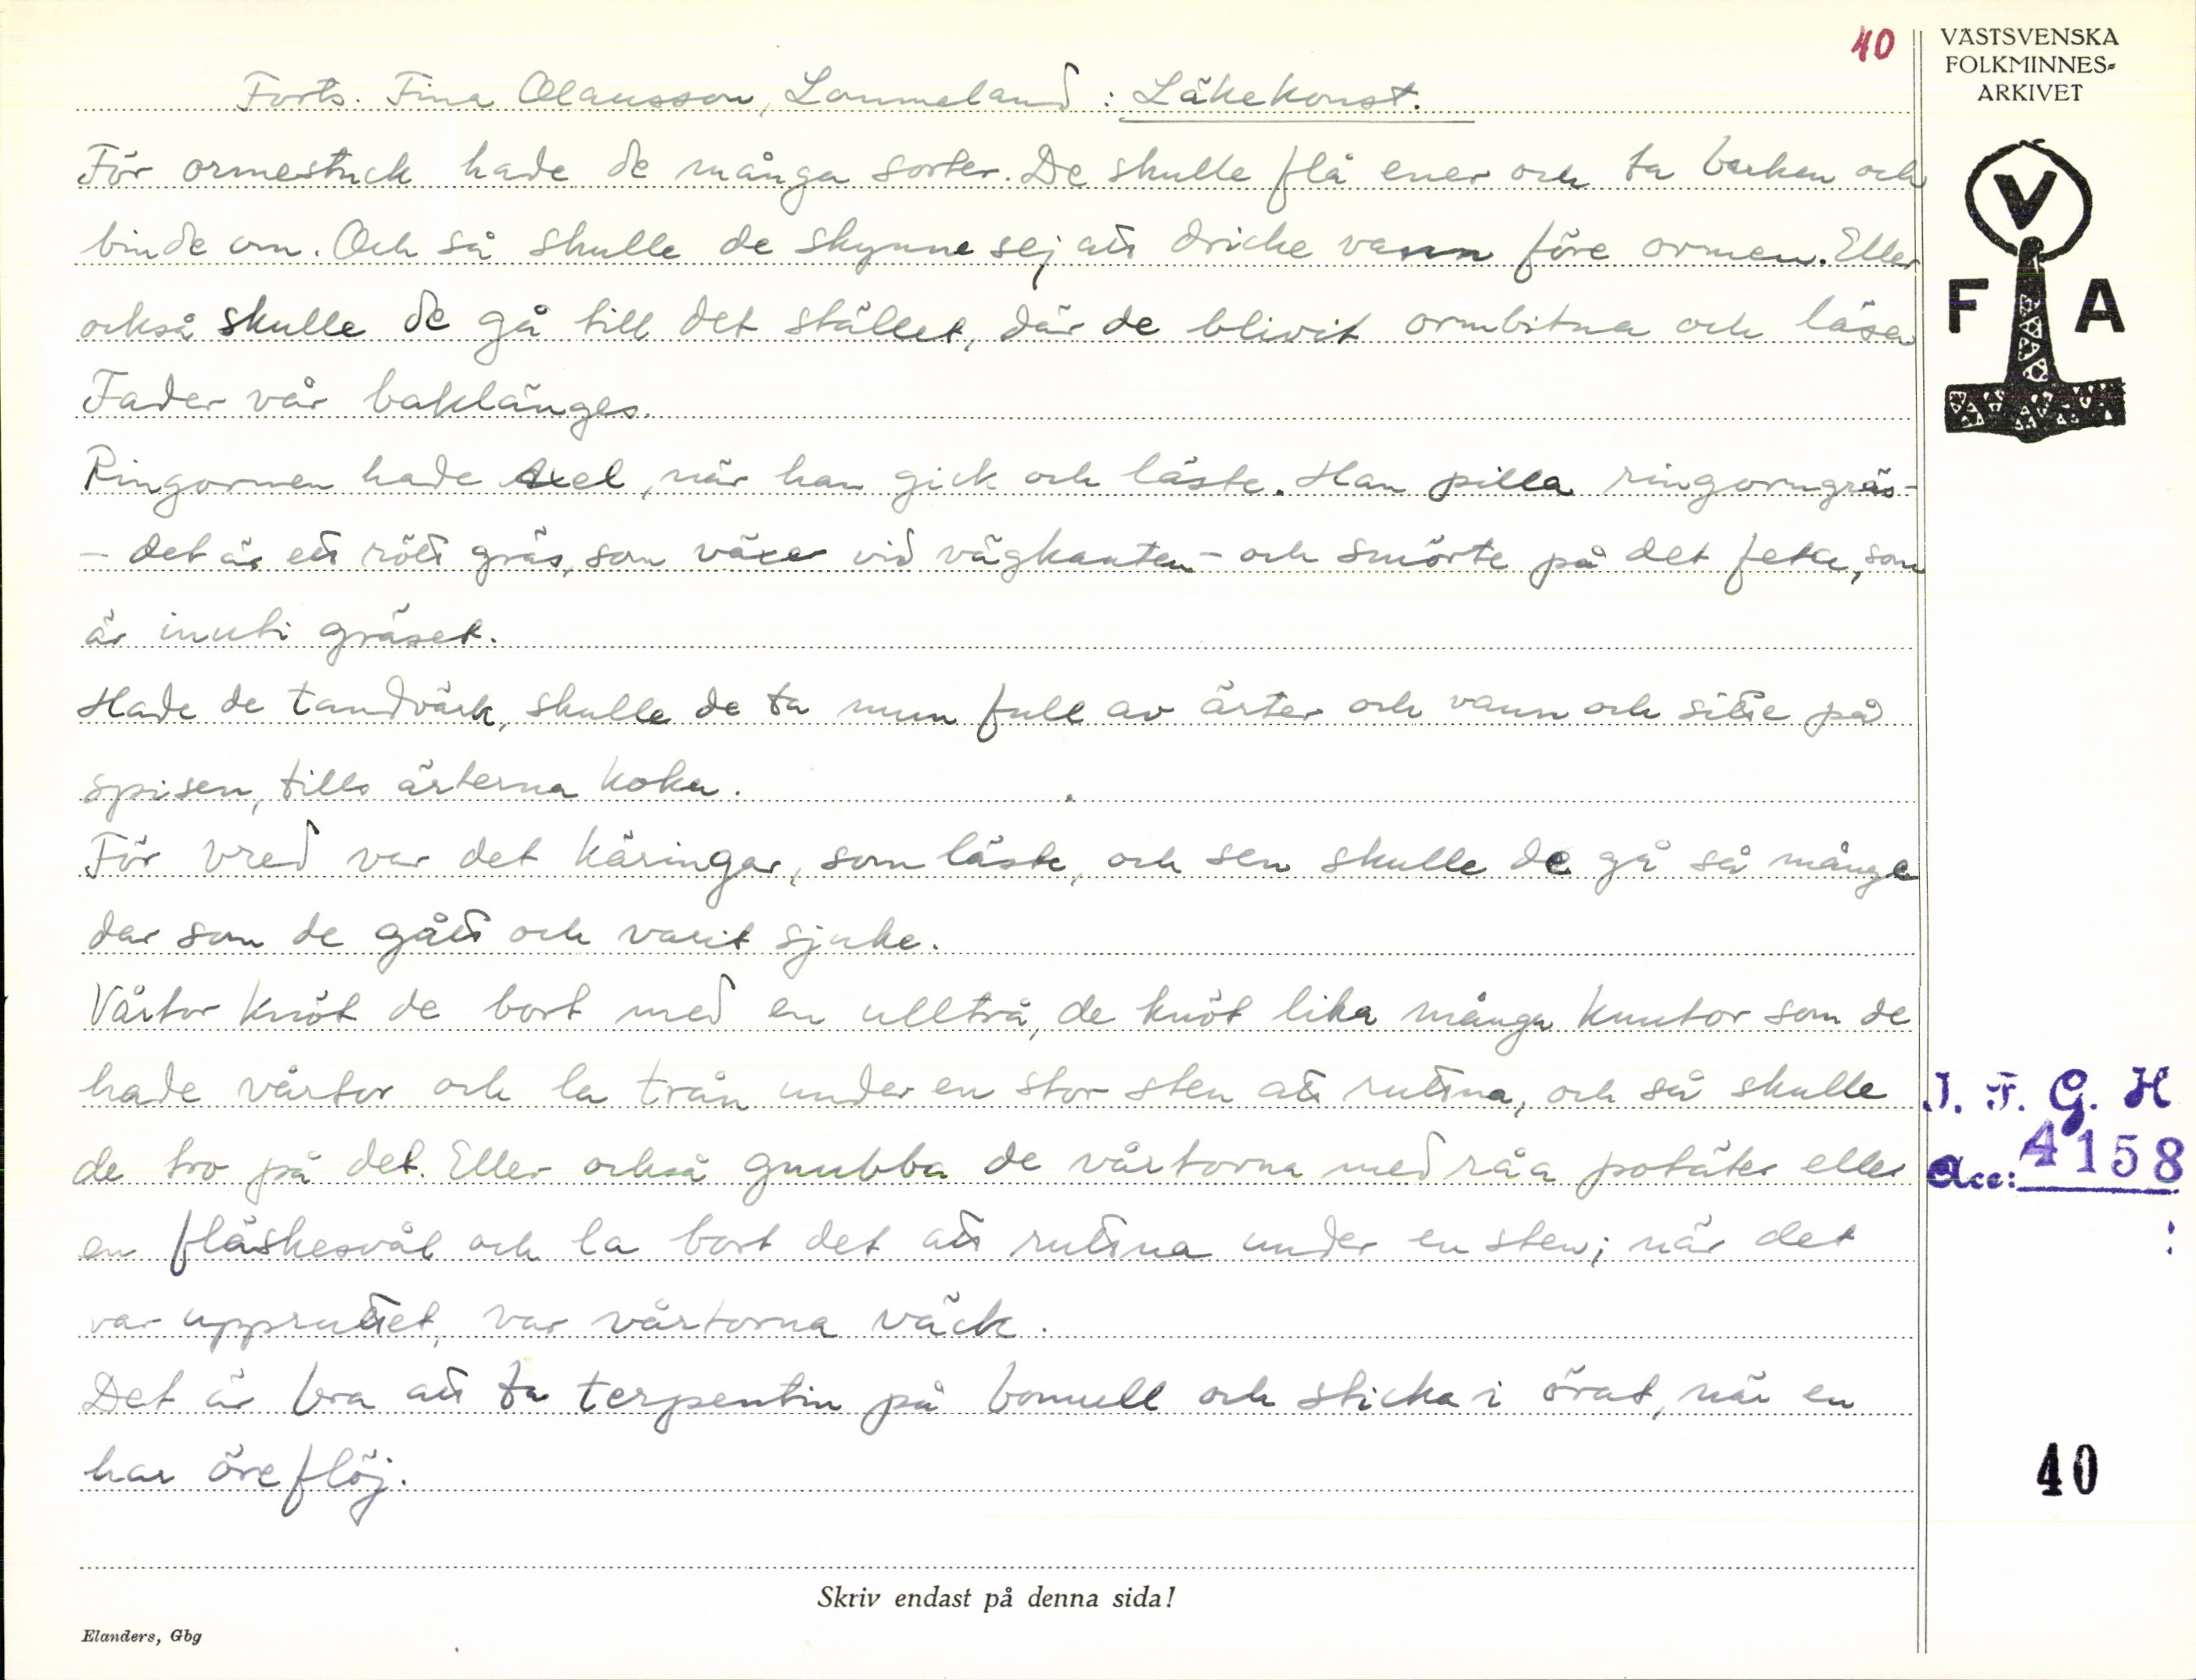 40
VÄSTSVENSKA
FOLKMINNES-
ARKIVET
Forts. Fina Olausson, Lommeland: Läkekonst.
För ormestuck hade de många sorter. De skulle flå ener och ta barken och
binde om. Och så skulle de skynne sej att dricke vann före ormen. Eller
också skulle de gå till det stället, där de blivit ormbitna och läsa
Fader vår baklänges.
Ringormen hade Axel, när han gick och läste. Han pilla ringormgräs-
- det är ett rött gräs, som växer vid vägkanten - och smörte på det feta, som
är inuti gräset.
Hade de tandvärk, skulle de ta mun full av ärter och vann och sitte på
spisen, tills ärterna koka.
För vred var det käringar, som läste, och sen skulle de gå så många
dar som de gått och varit sjuke.
Vårtor knöt de bort med en ulltrå, de knöt lika många knutor som de
hade vårtor och la trån under en stor sten att ruttna, och så skulle
de tro på det. Eller också gnubba de vårtorna med råa potäter eller
en fläskesvål och la bort det att ruttna under en sten; när det
var uppruttet, var vårtorna väck.
Det är bra att ta terpentin på bomull och sticka i örat, när en
har öreflöj.
V
F A
I. F. G. H
Acc: 4158
:
40
Skriv endast på denna sida!
Elanders, Gbg